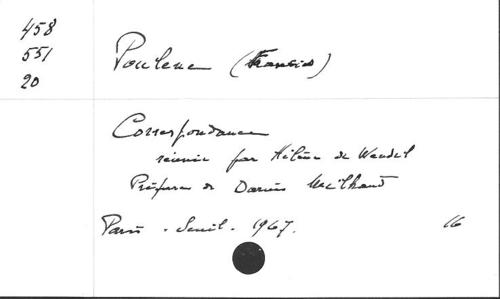 458
551
20
Poulenc (Francis)
Correspondance
réunie par Hélène de Wendel
Préface de Darius Milhaud
Paris - Seuil - 1967.
16